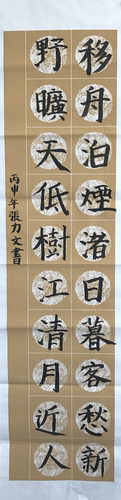 移舟泊煙渚日暮客愁新
野曠天低樹江清月近人
丙申年張力文書